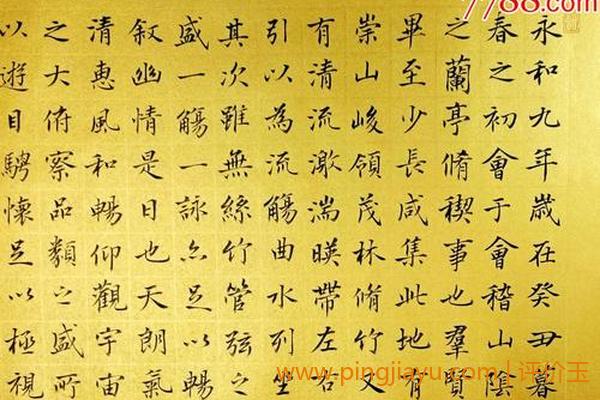 永和九年歲在癸丑暮
春之初會于會稽山陰
之蘭亭脩稧事也羣賢
畢至少長咸集此地有
崇山峻領茂林脩竹又
有清流激湍暎帶左右
引以為流觴曲水列坐
其次雖無絲竹管弦之
盛一觴一詠亦足以暢
叙幽情是日也天朗氣
清惠風和暢仰觀宇宙
之大俯察品類之盛所
以遊目騁懷足以極視
7788.com
www.pingjiayu.com|评价玉